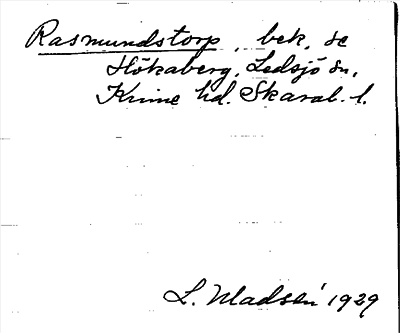 Rasmundstorp, bek, se
Hökaberg, Ledsjö sn,
Kinne hd. Skarab. l.
L. Madsén 1929